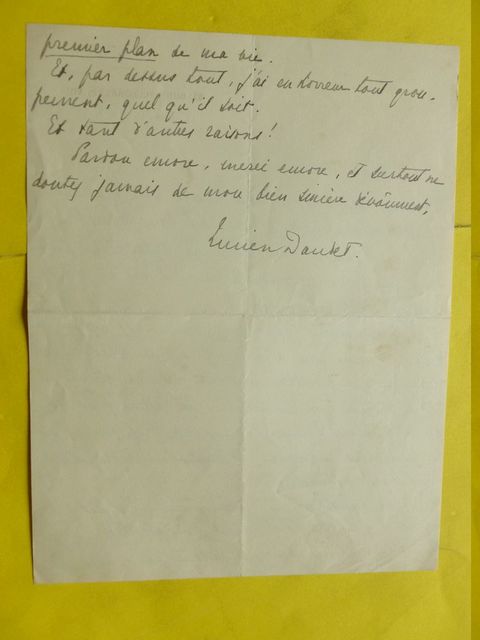 premier plan de ma vie.
Et, par dessus tout, j'ai en horreur tout grou-
pement, quel qu'il soit.
Et tant d'autres raisons!
Pardon encore, merci encore, et surtout ne
doutez jamais de mon bien sincère dévouement,
Lucien Daudet.